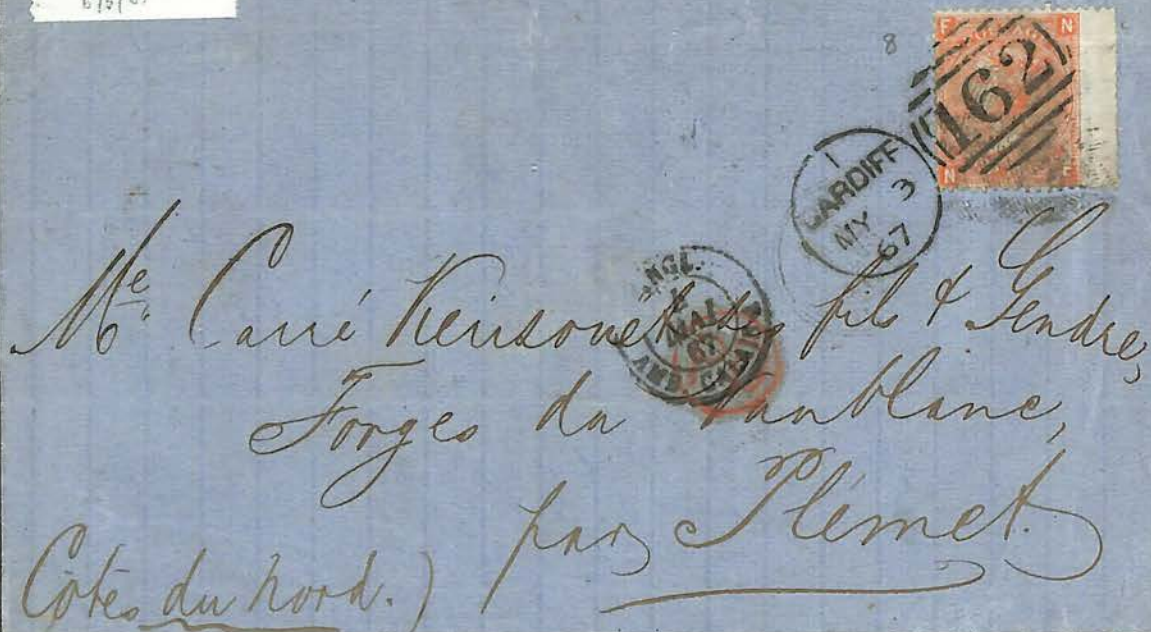 8
F N
162
N F
1
CARDIFF
MY 3
67
ANGL.
4
MAI
67
AMB. CALAIS
Me Carré Kerisouet ses fils & Gendre,
Forges du Vaublanc,
par Plémet.
Côtes du Nord.)